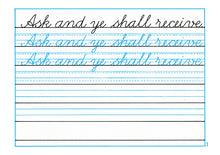 Ask and ye shall receive.
Ask and ye shall receive.
Ask and ye shall receive.